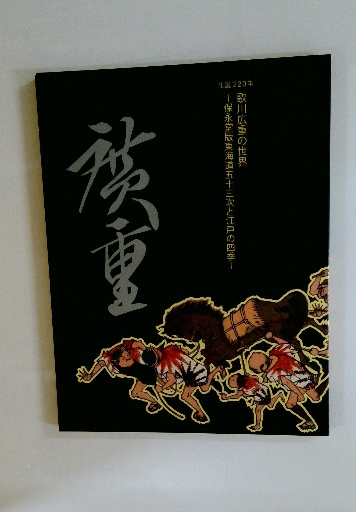 生誕220年
歌川広重の世界
―保永堂版東海道五十三次と江戸の四季―
廣重